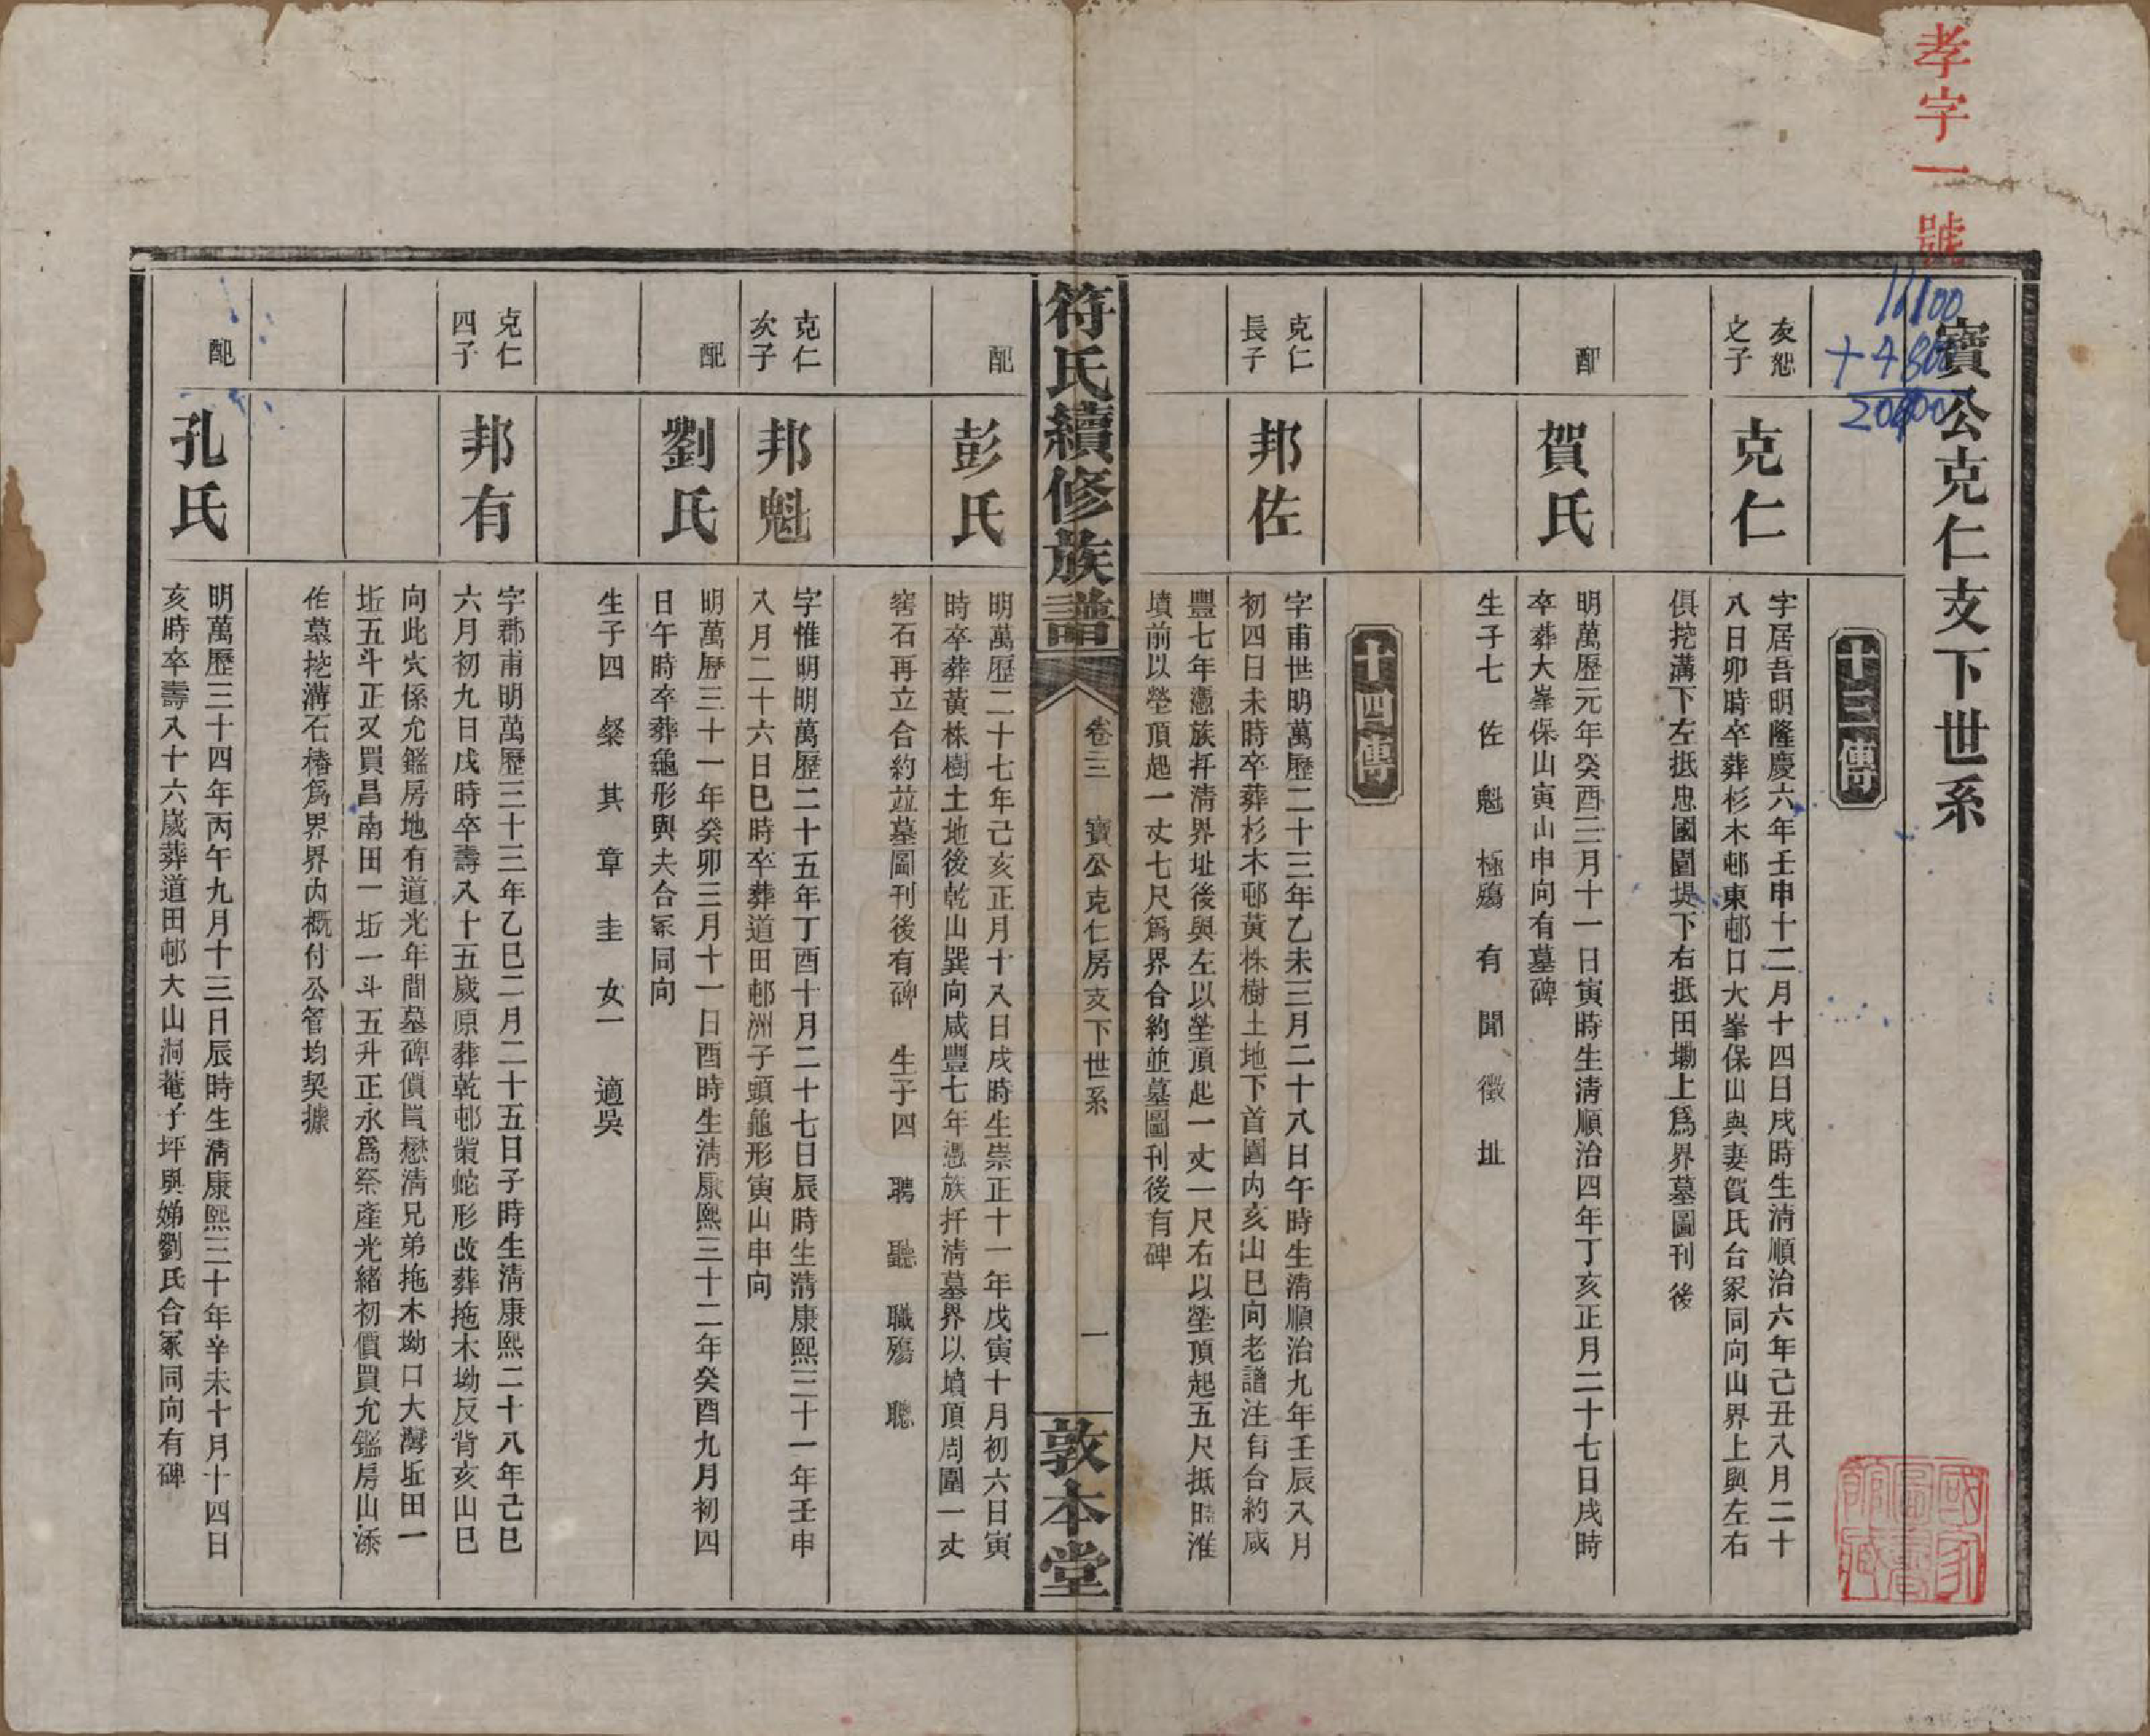 孝字一號
16100
+4800
20900
寶公克仁支下世系
十三傳
友恕
之子
克仁
字居吾明隆慶六年壬申十二月十四日戌時生淸順治六年己丑八月二十
八日卯時卒葬杉木邨東邨口大峯保山與妻賀氏合冢同向山界上與左右
俱挖溝下左抵忠國園堤下右抵田墈上爲界墓圖刊後
配
賀氏
明萬歷元年癸酉三月十一日寅時生淸順治四年丁亥正月二十七日戌時
卒葬大峯保山寅山申向有墓碑
生子七 佐 魁 極殤 有 聞 徵 址
十四傳
克仁
長子
邦佐
字甫世明萬歷二十三年乙未三月二十八日午時生淸順治九年壬辰八月
初四日未時卒葬杉木邨黃株樹土地下首園內亥山巳向老譜注有合約咸
豐七年憑族扦淸界址後與左以塋頂起一丈一尺右以塋頂起五尺抵時淮
墳前以塋頂起一丈七尺爲界合約並墓圖刊後有碑
符氏續修族譜
卷三 寶公克仁房支下世系
一
敦本堂
配
彭氏
明萬歷二十七年己亥正月十八日戌時生崇正十一年戊寅十月初六日寅
時卒葬黃株樹土地後乾山巽向咸豐七年憑族扦淸墓界以墳頂周圍一丈
窖石再立合約並墓圖刊後有碑 生子四 聘 聽 職殤 聰
克仁
次子
邦魁
字惟明明萬歷二十五年丁酉十月二十七日辰時生淸康熙三十一年壬申
八月二十六日巳時卒葬道田邨洲子頭龜形寅山申向
配
劉氏
明萬歷三十一年癸卯三月十一日酉時生淸康熙三十二年癸酉九月初四
日午時卒葬龜形與夫合冢同向
生子四 粲 其 章 圭 女一 適吳
克仁
四子
邦有
字郡甫明萬歷三十三年乙巳二月二十五日子時生淸康熙二十八年己巳
六月初九日戌時卒壽八十五歲原葬乾邨紫蛇形改葬拖木坳反背亥山巳
向此穴係允鑑房地有道光年間墓碑價買懋淸兄弟拖木坳口大灣坵田一
坵五斗正又買昌南田一坵一斗五升正永爲祭產光緒初價買允鑑房山添
作墓挖溝石樁爲界界內概付公管均契據
配
孔氏
明萬歷三十四年丙午九月十三日辰時生淸康熙三十年辛未十月十四日
亥時卒壽八十六歲葬道田邨大山洞菴子坪與娣劉氏合冢同向有碑
國家
圖書
館藏